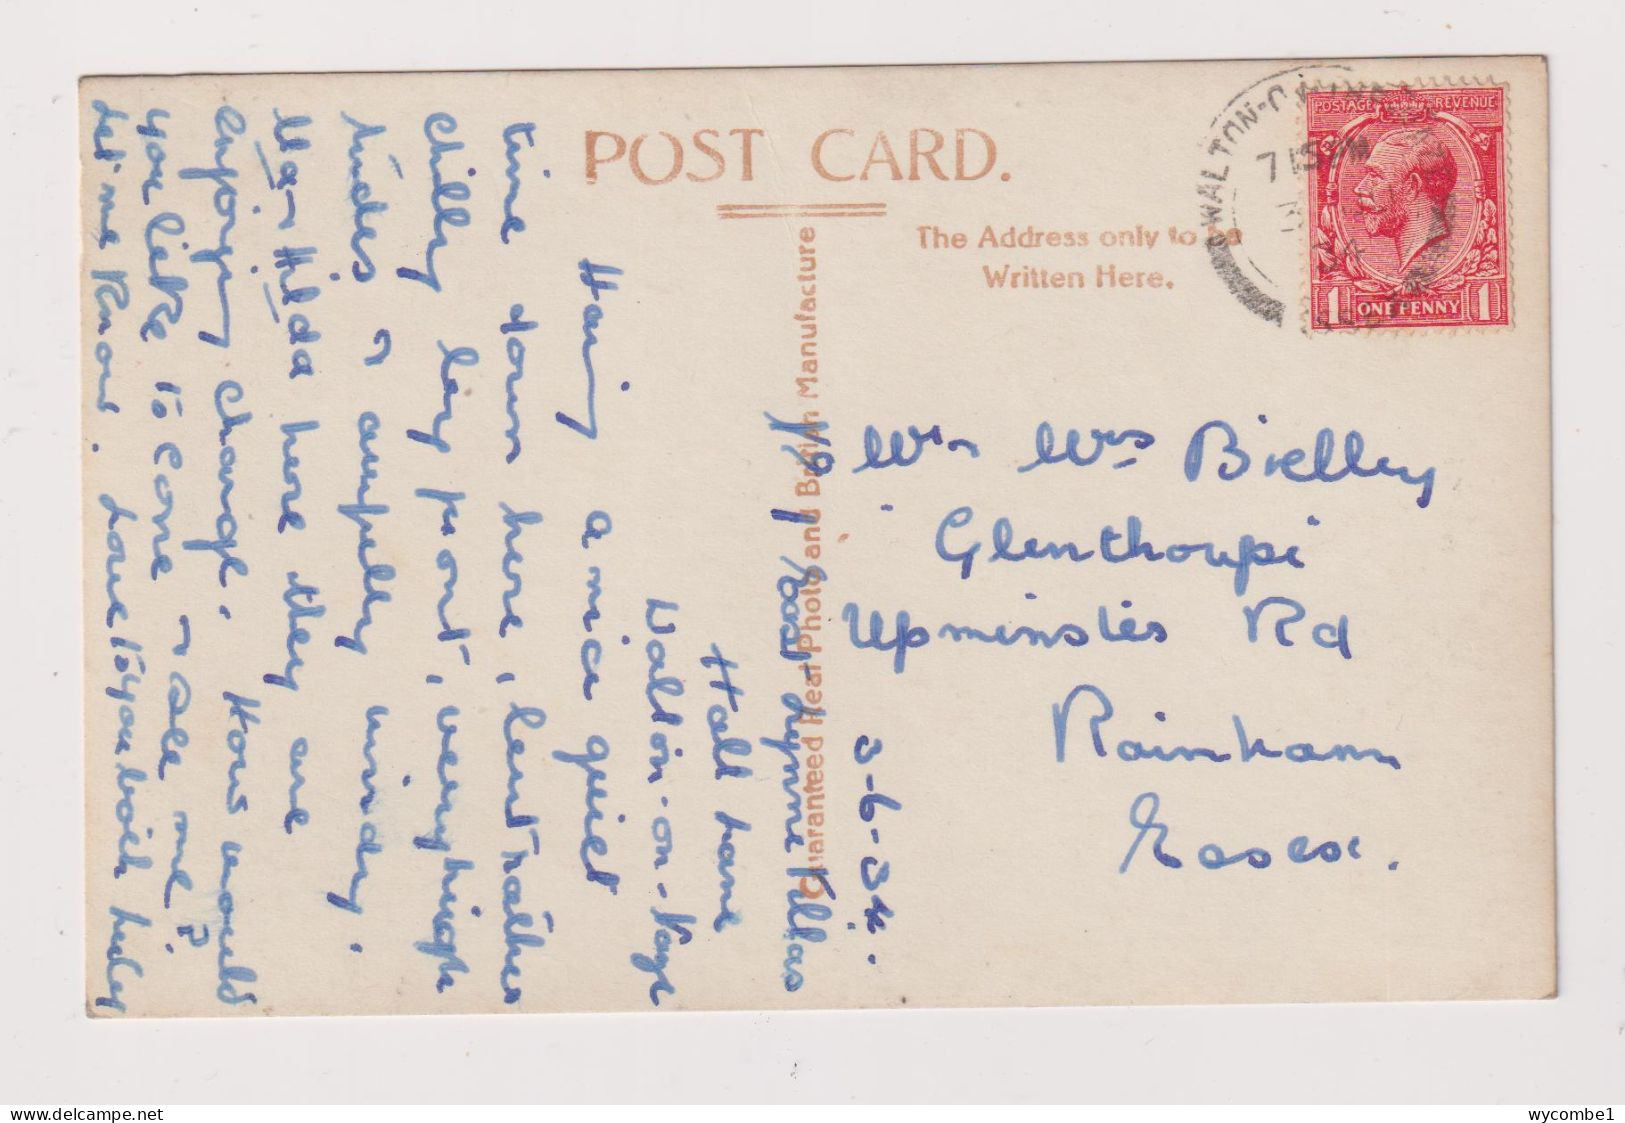 POST CARD.
The Address only to be
Written Here.
Guaranteed Real Photo and British Manufacture
WALTON-ON-
715 PM
34
POSTAGE REVENUE
1 ONE PENNY 1
Mr Mrs Bielby
Glenthorpe
Upminster Rd
Rainham
Essex.
3-6-34.
Villas
Hall Lane
Walton-on-Naze
Having a nice quiet
time down here, but rather
chilly by front, very high
tides & awfully windy.
Ma & Hilda here they are
enjoying change. How would
you like to come & see me?
Let me know. Love to you both
wycombe1